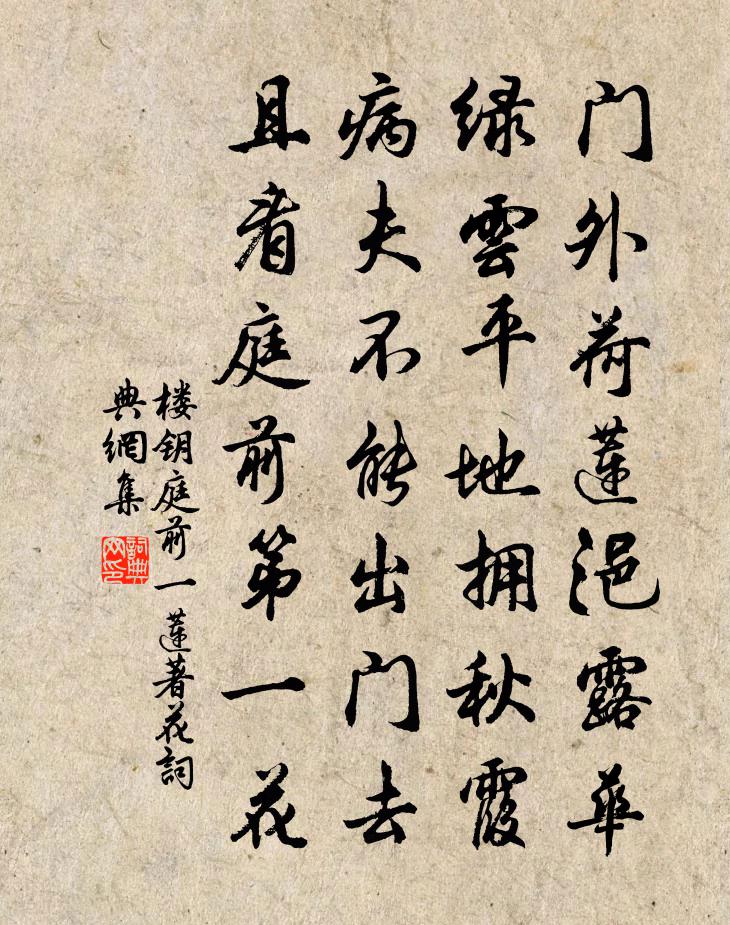 门外荷莲浥露华
绿雲平地拥秋霞
病夫不能出门去
且看庭前第一花
楼钥庭前一莲著花詞
典網集
詞典網印